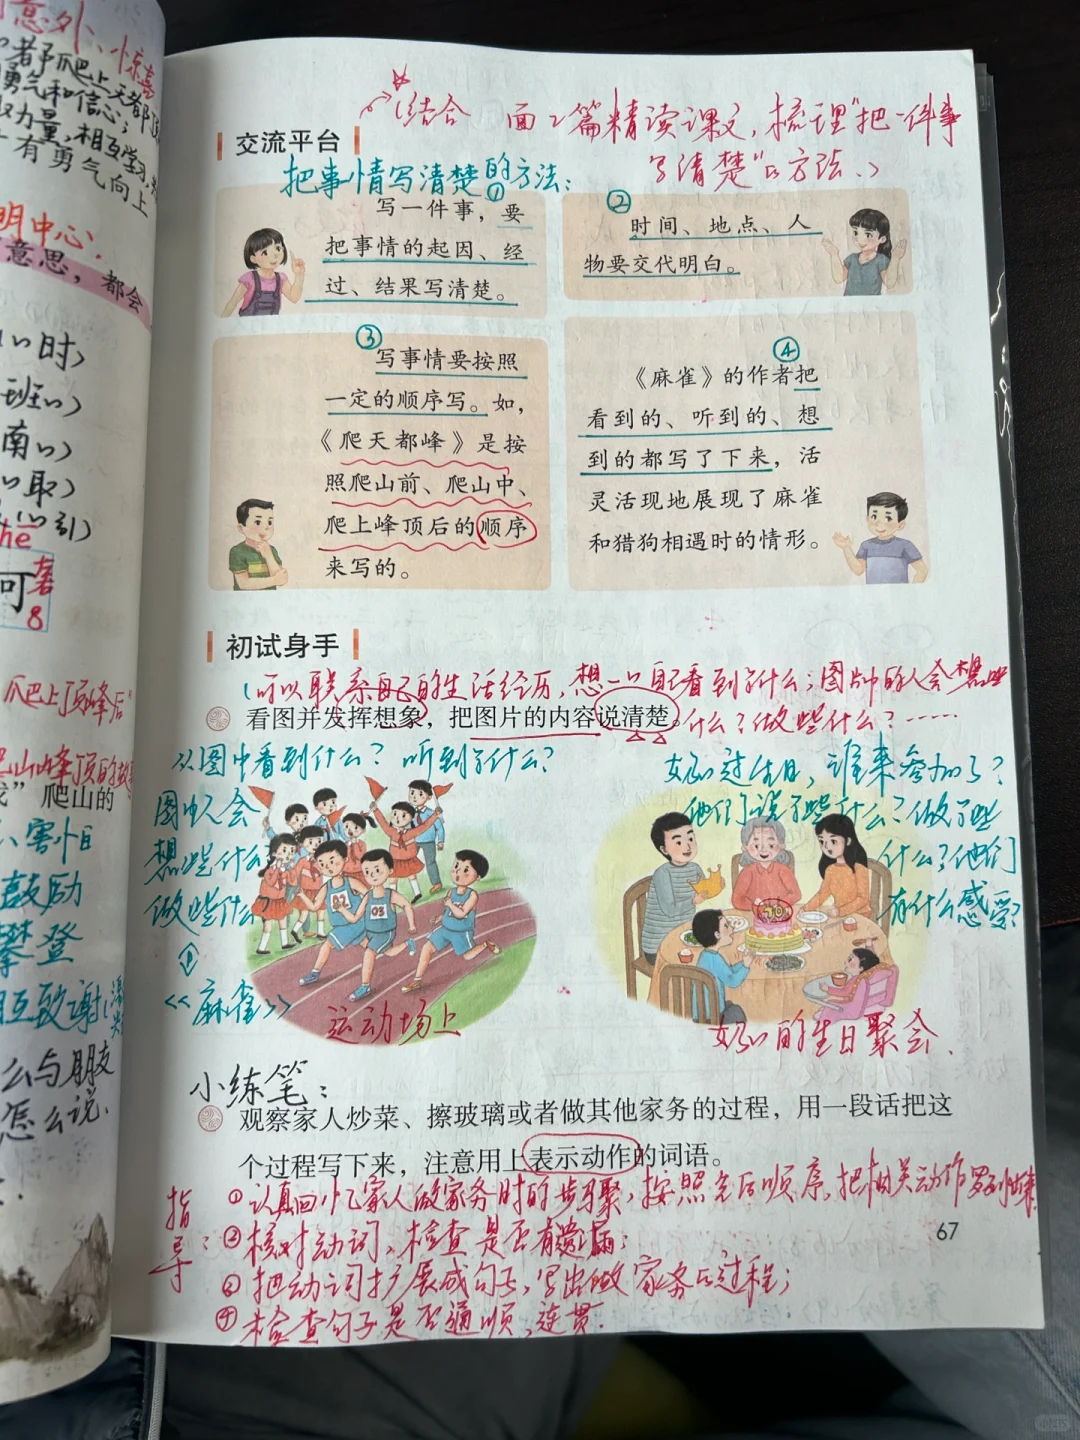 意外、惊喜
都爬上天都
勇气和信心;
力量,相互学习,
有勇气向上
明中心:
意思,都会
时)
班
南
取)
引)
可
8
爬上顶峰后
爬山的
害怕
鼓励
攀登
互致谢
么与朋友
怎么说.
(结合 面2篇精读课文,梳理"把一件事
写清楚"的方法。)
交流平台
把事情写清楚的方法:
①
写一件事,要
把事情的起因、经
过、结果写清楚。
②
时间、地点、人
物要交代明白。
③
写事情要按照
一定的顺序写。如,
《爬天都峰》是按
照爬山前、爬山中、
爬上峰顶后的顺序
来写的。
④
《麻雀》的作者把
看到的、听到的、想
到的都写了下来,活
灵活现地展现了麻雀
和猎狗相遇时的情形。
初试身手
(可以联系自己的生活经历,想一想自己看到了什么;图中的人会想些
什么?做些什么?……
看图并发挥想象,把图片的内容说清楚。
从图中看到什么?听到了什么?
图中人会
想些什么
做些什么
《麻雀》
02
03
运动场上
奶奶过生日,谁来参加了?
他们说了些什么?做了些
什么?他们
有什么感受?
70
奶奶的生日聚会.
小练笔:
观察家人炒菜、擦玻璃或者做其他家务的过程,用一段话把这
个过程写下来,注意用上表示动作的词语。
指导:
①认真回忆家人做家务时的步骤,按照先后顺序,把相关动作罗列出来
②核对动词,检查是否有遗漏;
③把动词扩展成句子,写出做家务的过程;
④检查句子是否通顺,连贯.
67